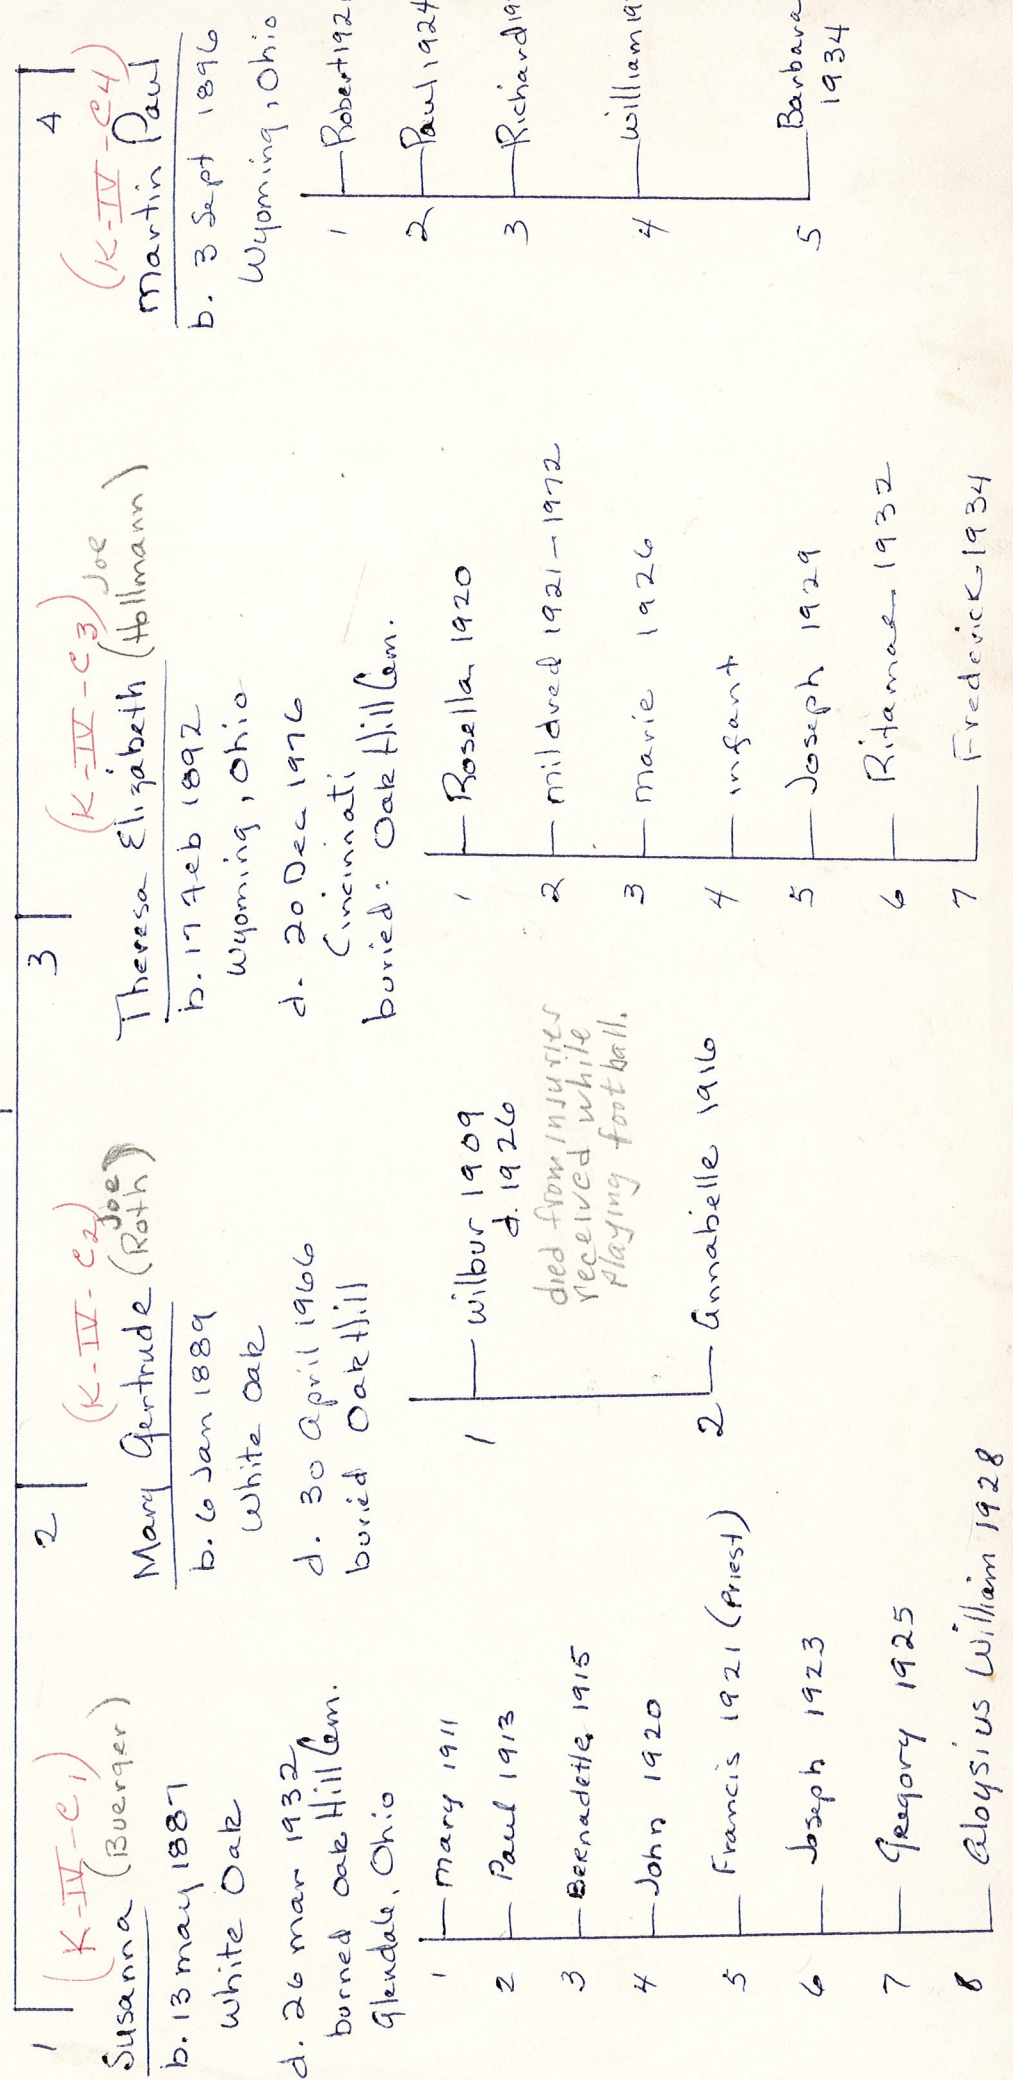 1
(K-IV-C1)
Susanna (Buerger)
b. 13 May 1887
White Oak
d. 26 Mar 1932
buried Oak Hill Cem.
Glendale, Ohio
1 Mary 1911
2 Paul 1913
3 Bernadette 1915
4 John 1920
5 Francis 1921 (Priest)
6 Joseph 1923
7 Gregory 1925
8 Aloysius William 1928
2
(K-IV-C2)
Joe
Mary Gertrude (Roth)
b. 6 Jan 1889
White Oak
d. 30 April 1966
buried Oak Hill
1 Wilbur 1909
d. 1926
died from injuries
received while
playing football.
2 Annabelle 1916
3
(K-IV-C3)
Joe
Theresa Elizabeth (Hollmann)
b. 17 Feb 1892
Wyoming, Ohio
d. 20 Dec 1976
Cincinnati
buried: Oak Hill Cem.
1 Rosella 1920
2 Mildred 1921-1972
3 Marie 1926
4 infant
5 Joseph 1929
6 Ritamae 1932
7 Frederick 1934
4
(K-IV-C4)
Martin Paul
b. 3 Sept 1896
Wyoming, Ohio
1 Robert 192
2 Paul 1924
3 Richard 19
4 William 19
5 Barbara
1934